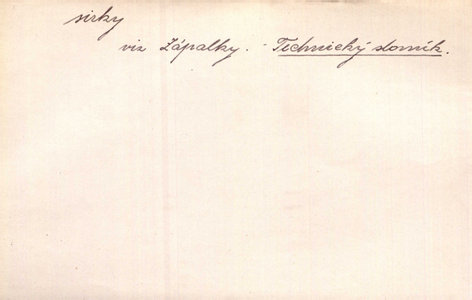 sirky
viz Zápalky. - Technický slovník.